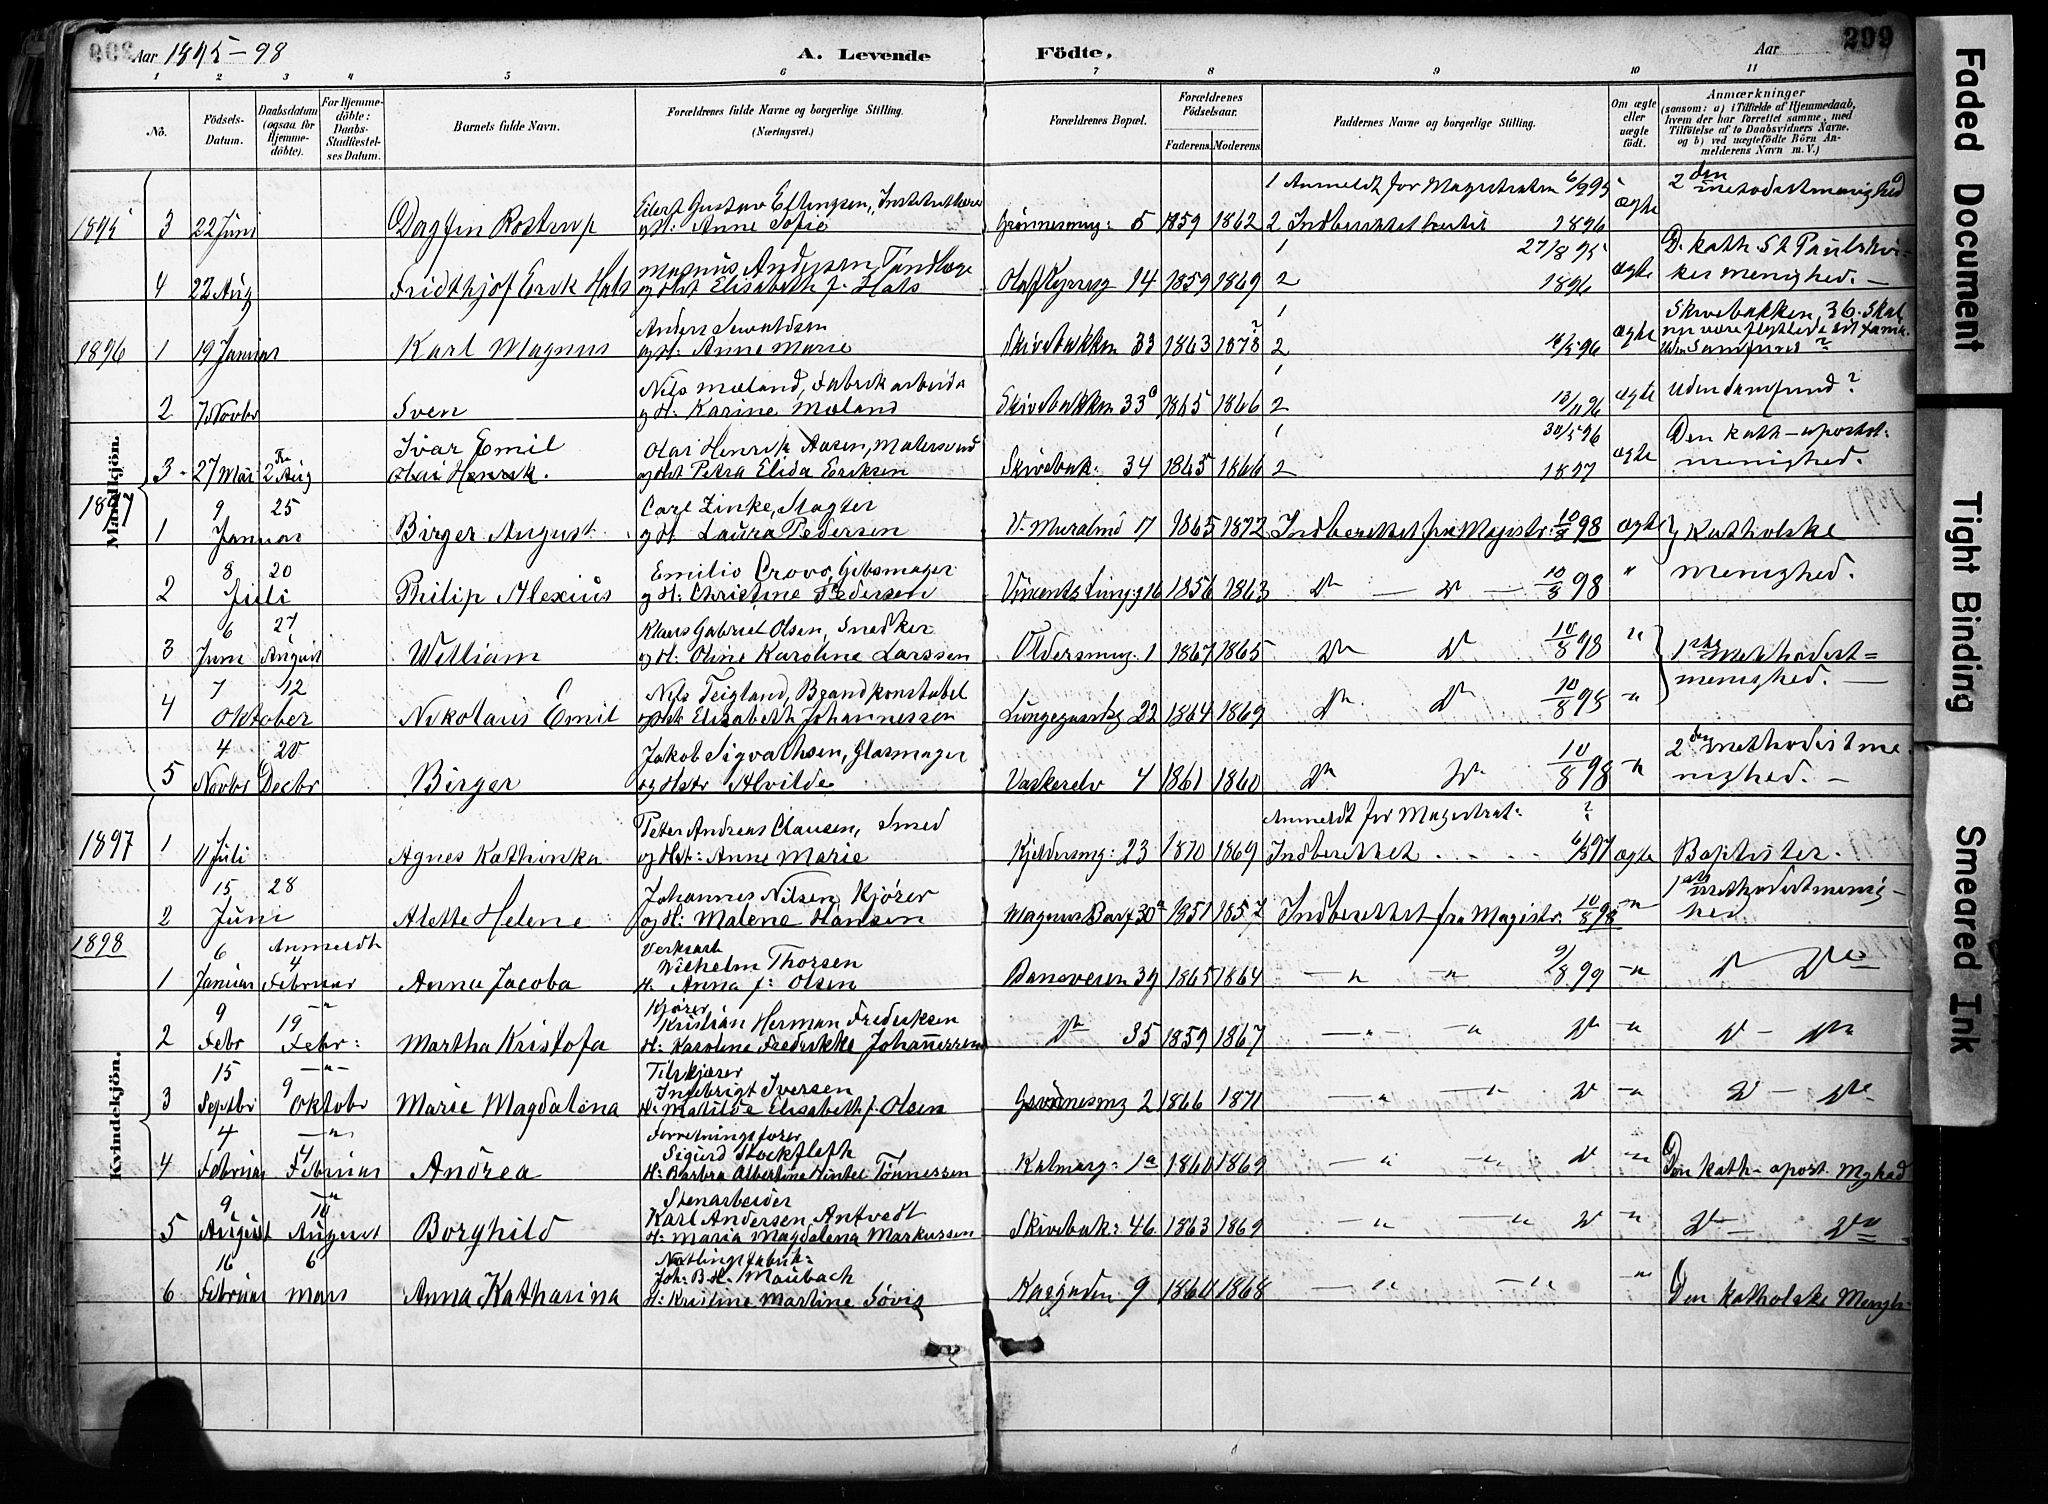 Aar 1895-98
A. Levende Födte.
Aar
209
1 2 3 4 5 6 7 8 9 10 11
No.
Födsels-Datum.
Daabsdatum (ogsaa for Hjemme-döbte).
For Hjemme-döbte: Daabs-Stadfæstel-ses Datum.
Barnets fulde Navn.
Forældrenes fulde Navne og borgerlige Stilling. (Næringsvei.)
Forældrenes Bopæl.
Forældrenes Födselsaar.
Faderens. Moderens.
Faddernes Navne og borgerlige Stilling.
Om ægte eller uægte födt.
Anmærkninger
(saasom: a) i Tilfælde af Hjemmedaab, hvem der har forrettet samme, med Tilföielse af to Daabsvidners Navne. og b) ved uægtefödte Börn An-melderens Navn m. V.)
Mandkjön.
1895 3 22 Juni Dagfin Rostrup
og H: Anne Sofie
5 1859 1862
1 Anmeldt for Magistraten 6/9 95
2 1896
ægte
2den metodistmenighed
4 22 Aug Fridthjof Erik Hals
Magnus Andersen, Tandlæge
og Hst Elisabeth f. Hals
14 1859 1869
1 27/8 95
2 1896
ægte
D. kath St Pauls kir-
kes menighed. —
1896 1 19 Januar Karl Magnus
og H: Anne Marie
Skivebakken 33 1863 1878 ?
1
2
ægte
Skivebakken 36. Skal
2 7 Novbr Sven
Nils Mæland, Fabrikarbeider
og H: Karine Mæland
Skivebakken 33 1865 1866
1
2
ægte
Uden Samfund?
3 27 Mai 2 Aug Ivar Emil
Olai Henrik.
Olai Henrik Aasen, Malersvend
og Hst Petra Elida Eriksen
Skivebak: 34 1865 1866
1 30/5 96
2 1897
ægte
Den kath-apostol:
menighed.
1897
1 9 25 Januar Birger August
Carl Zinke, Slagter
og H Laura Pedersen
17 1865 1872
Indberettet fra Magistr: 10/8 98
ægte
Katholske
menighed.
2 8 20 Juli Philip Alexius
Emilio Crovo, Gibsmager
og H: Christine Pedersen
16 1856 1863
10/8 98 "
3 6 Juni 27 August William
Klaus Gabriel Olsen, Snedker
og H: Oline Karoline Larssen
1 1867 1865
10/8 98 "
1ste Methodist=
menighed. —
4 7 12 Oktober Nikolaus Emil
Nils Teigland, Brandkonstabel
og Hst Elisabeth Johannessen
Lungegaardsg 22 1864 1869
10/8 98 "
5 4 Novbr 20 Decbr Birger
Jakob Sigvathsen, Glasmager
og Hstr Alvilde
Vaskerelv 4 1861 1860
10/8 98 "
2den Methodistme-
nighed. —
Kvindekjön.
1897 1 11 Juli Agnes Kathinka
Peter Andreas Clausen, Smed
og Hst: Anne Marie
23 1870 1869
Anmeldt for Magistrat: ?
Indberettet
ægte
Baptister.
2 15 28 Juni Alette Helene
Johannes Nilsen Kjører
og H: Malene Hansen
1851 1857
Indberettet fra Magistr: 10/8 98 "
1ste Methodistmenig-
hed
1898
1 6 Januar Anmeldt 4 Februar Anna Jacoba
Wilhelm Thorsen
H. Anna f: Olsen
39 1865 1864
9/8 99 "
2 9 Febr 19 Febr: Martha Kristofa
Kjører
Kristian Herman Frederiksen
H: Karoline Fredrikke Johannessen
35 1859 1867
3 15 Septbr 9 Oktobr Marie Magdalena
Ingebrigt Iversen
H: Matilde Elisabeth f. Olsen
2 1866 1871
4 4 Februar 4 Februar Andrea
Forretningsfører
Sigurd Stockfleth
H: Barbra Albertine Hintel Tönnessen
Kalvarg: 1a 1860 1869
Den kath-apost. Mghed
5 9 August 10 August Borghild
Stenarbeider
Karl Andersen Antvedt
H: Maria Magdalena Markussen
Skivebak: 46 1863 1869
6 16 Februar 6 Mars Anna Katharina
Joh: B H. Maubach
H: Kristine Martine Søvig
9 1860 1868
Den katholske Mengh.
Faded Document
Tight Binding
Smeared Ink